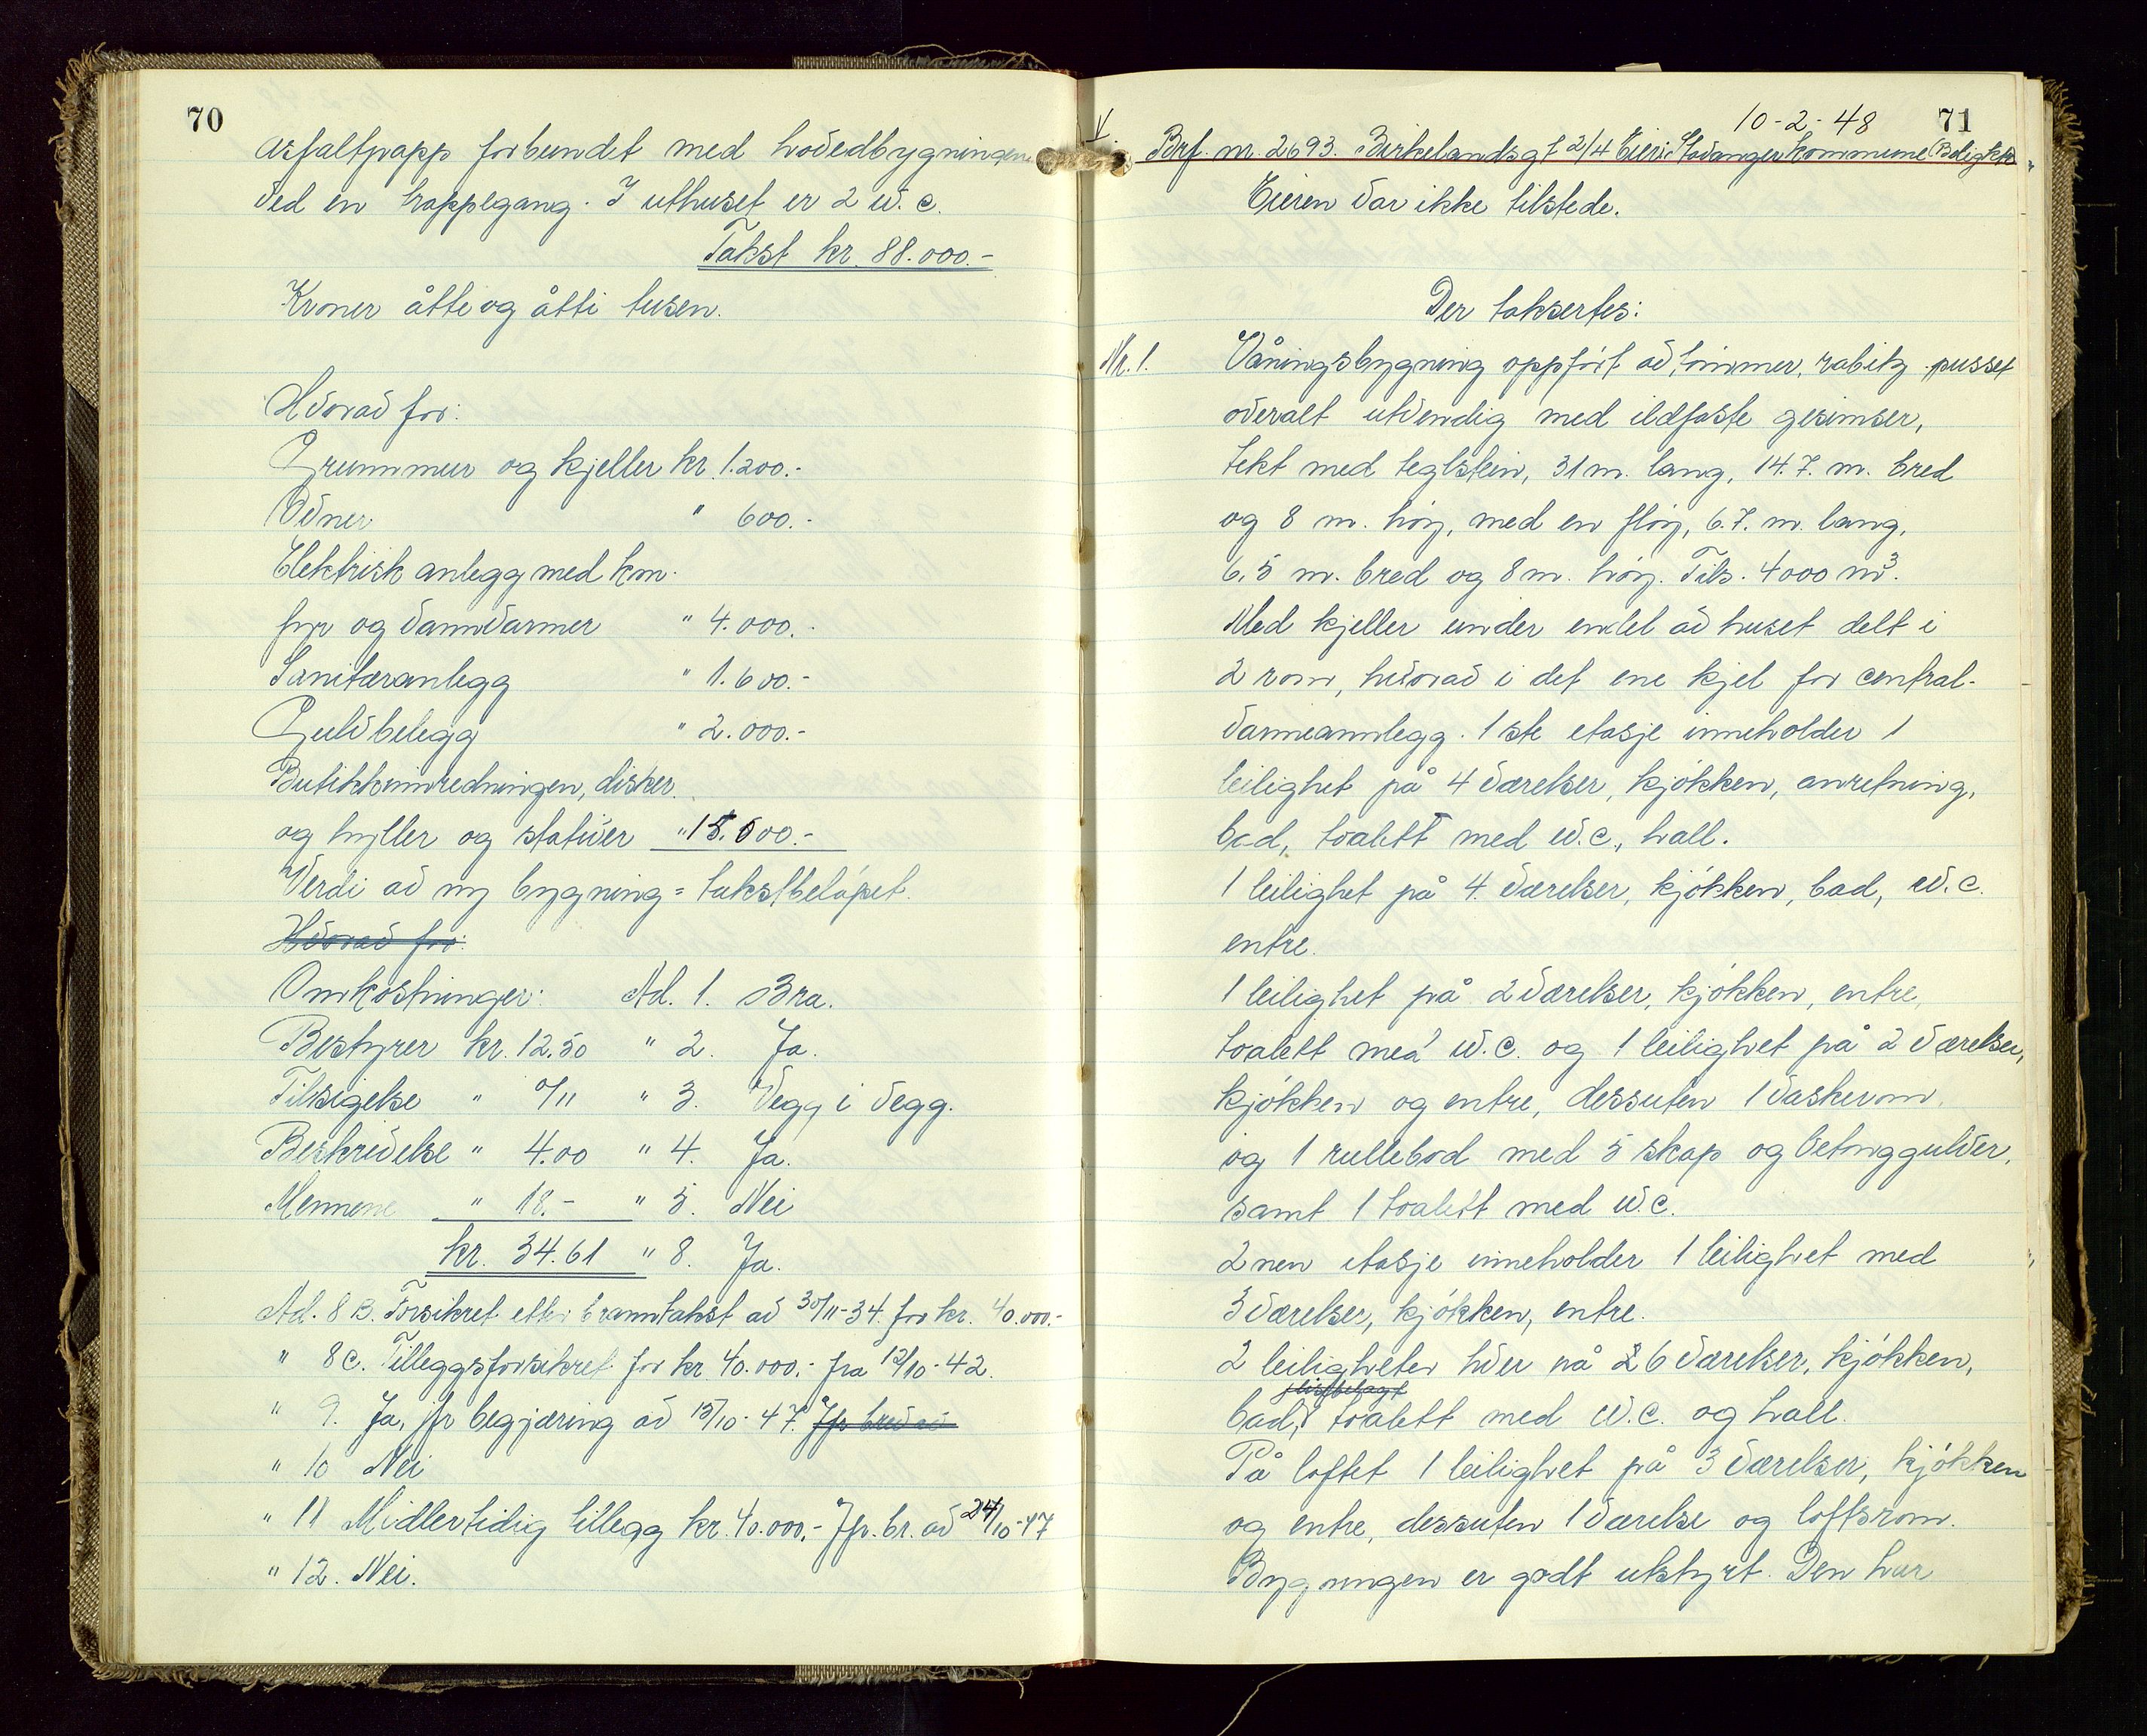 70
asfaltpapp forbundet med hovedbygningen
ved en trappegang. I uthuset er 2 w.c.
Takst kr. 88.000.-
Kroner åtte og åtti tusen.
Hvorav for:
Grunnmur og kjeller kr. 1.200.-
Ovner " 600.-
Elektrisk anlegg med km.
fyr og vannvarmer " 4.000.-
Sanitæranlegg " 1.600.-
Gulvbelegg " 2.000.-
Butikkinnredningen, disker
og hyller og stativer " 15.500.-
Verdi av ny bygning = takstbeløpet.
Hvorav for:
Omkostninger: Ad. 1. Bra.
Bestyrer kr. 12.50 " 2. Ja.
Tilsigelse " 0/11 " 3. Vegg i vegg.
Beskrivelse " 4.00 " 4. Ja.
Mennene " 18.- " 5. Nei
kr. 34.61 " 8. Ja.
Ad. 8 B. Forsikret etter branntakst av 30/11-34. for kr. 40.000.-
" 8 C. Tilleggsforsikret for kr. 40.000.- fra 12/10-42.
" 9. Ja, jfr begjæring av 15/10-47. Jfr brev av
" 10 Nei
" 11 Midlertidig tillegg kr. 40.000.- Jfr. br. av 24/10-47
" 12. Nei.
10-2-48 71
Brf. nr. 2693. Birkelandsgt 2/4 Eier: Stavanger Kommune
Eieren var ikke tilstede.
Der taksertes:
Nr. 1. Våningsbygning oppført av tømmer, rabitz pusset
overalt utvendig med ildfaste gesimser,
tekt med teglstein, 31 m. lang, 14.7. m. bred
og 8 m. høy, med en fløy, 6.7. m. lang,
6,5 m. bred og 8 m. høy. Tils. 4000 m³.
Med kjeller under endel av huset delt i
2 rom, hvorav i det ene kjel for central-
varmeannlegg. 1 ste etasje inneholder 1
leilighet på 4 værelser, kjøkken, anretning,
bad, toalett med w.c., hall.
1 leilighet på 4. værelser, kjøkken, bad, w.c.
entre.
1 leilighet på 2 værelser, kjøkken, entre,
toalett med w.c. og 1 leilighet på 2 værelser,
kjøkken og entre, dessuten 1 vaskerom
og 1 rullebod med 5 skap og betonggulver,
samt 1 toalett med w.c.
2 nen etasje inneholder 1 leilighet med
3 værelser, kjøkken, entre.
2 leiligheter hver på 6 værelser, kjøkken,
flisebelagt
bad, toalett med w.c. og hall.
På loftet 1 leilighet på 3 værelser, kjøkken
og entre, dessuten 1 værelse og loftsrom.
Bygningen er godt utstyrt. Den har